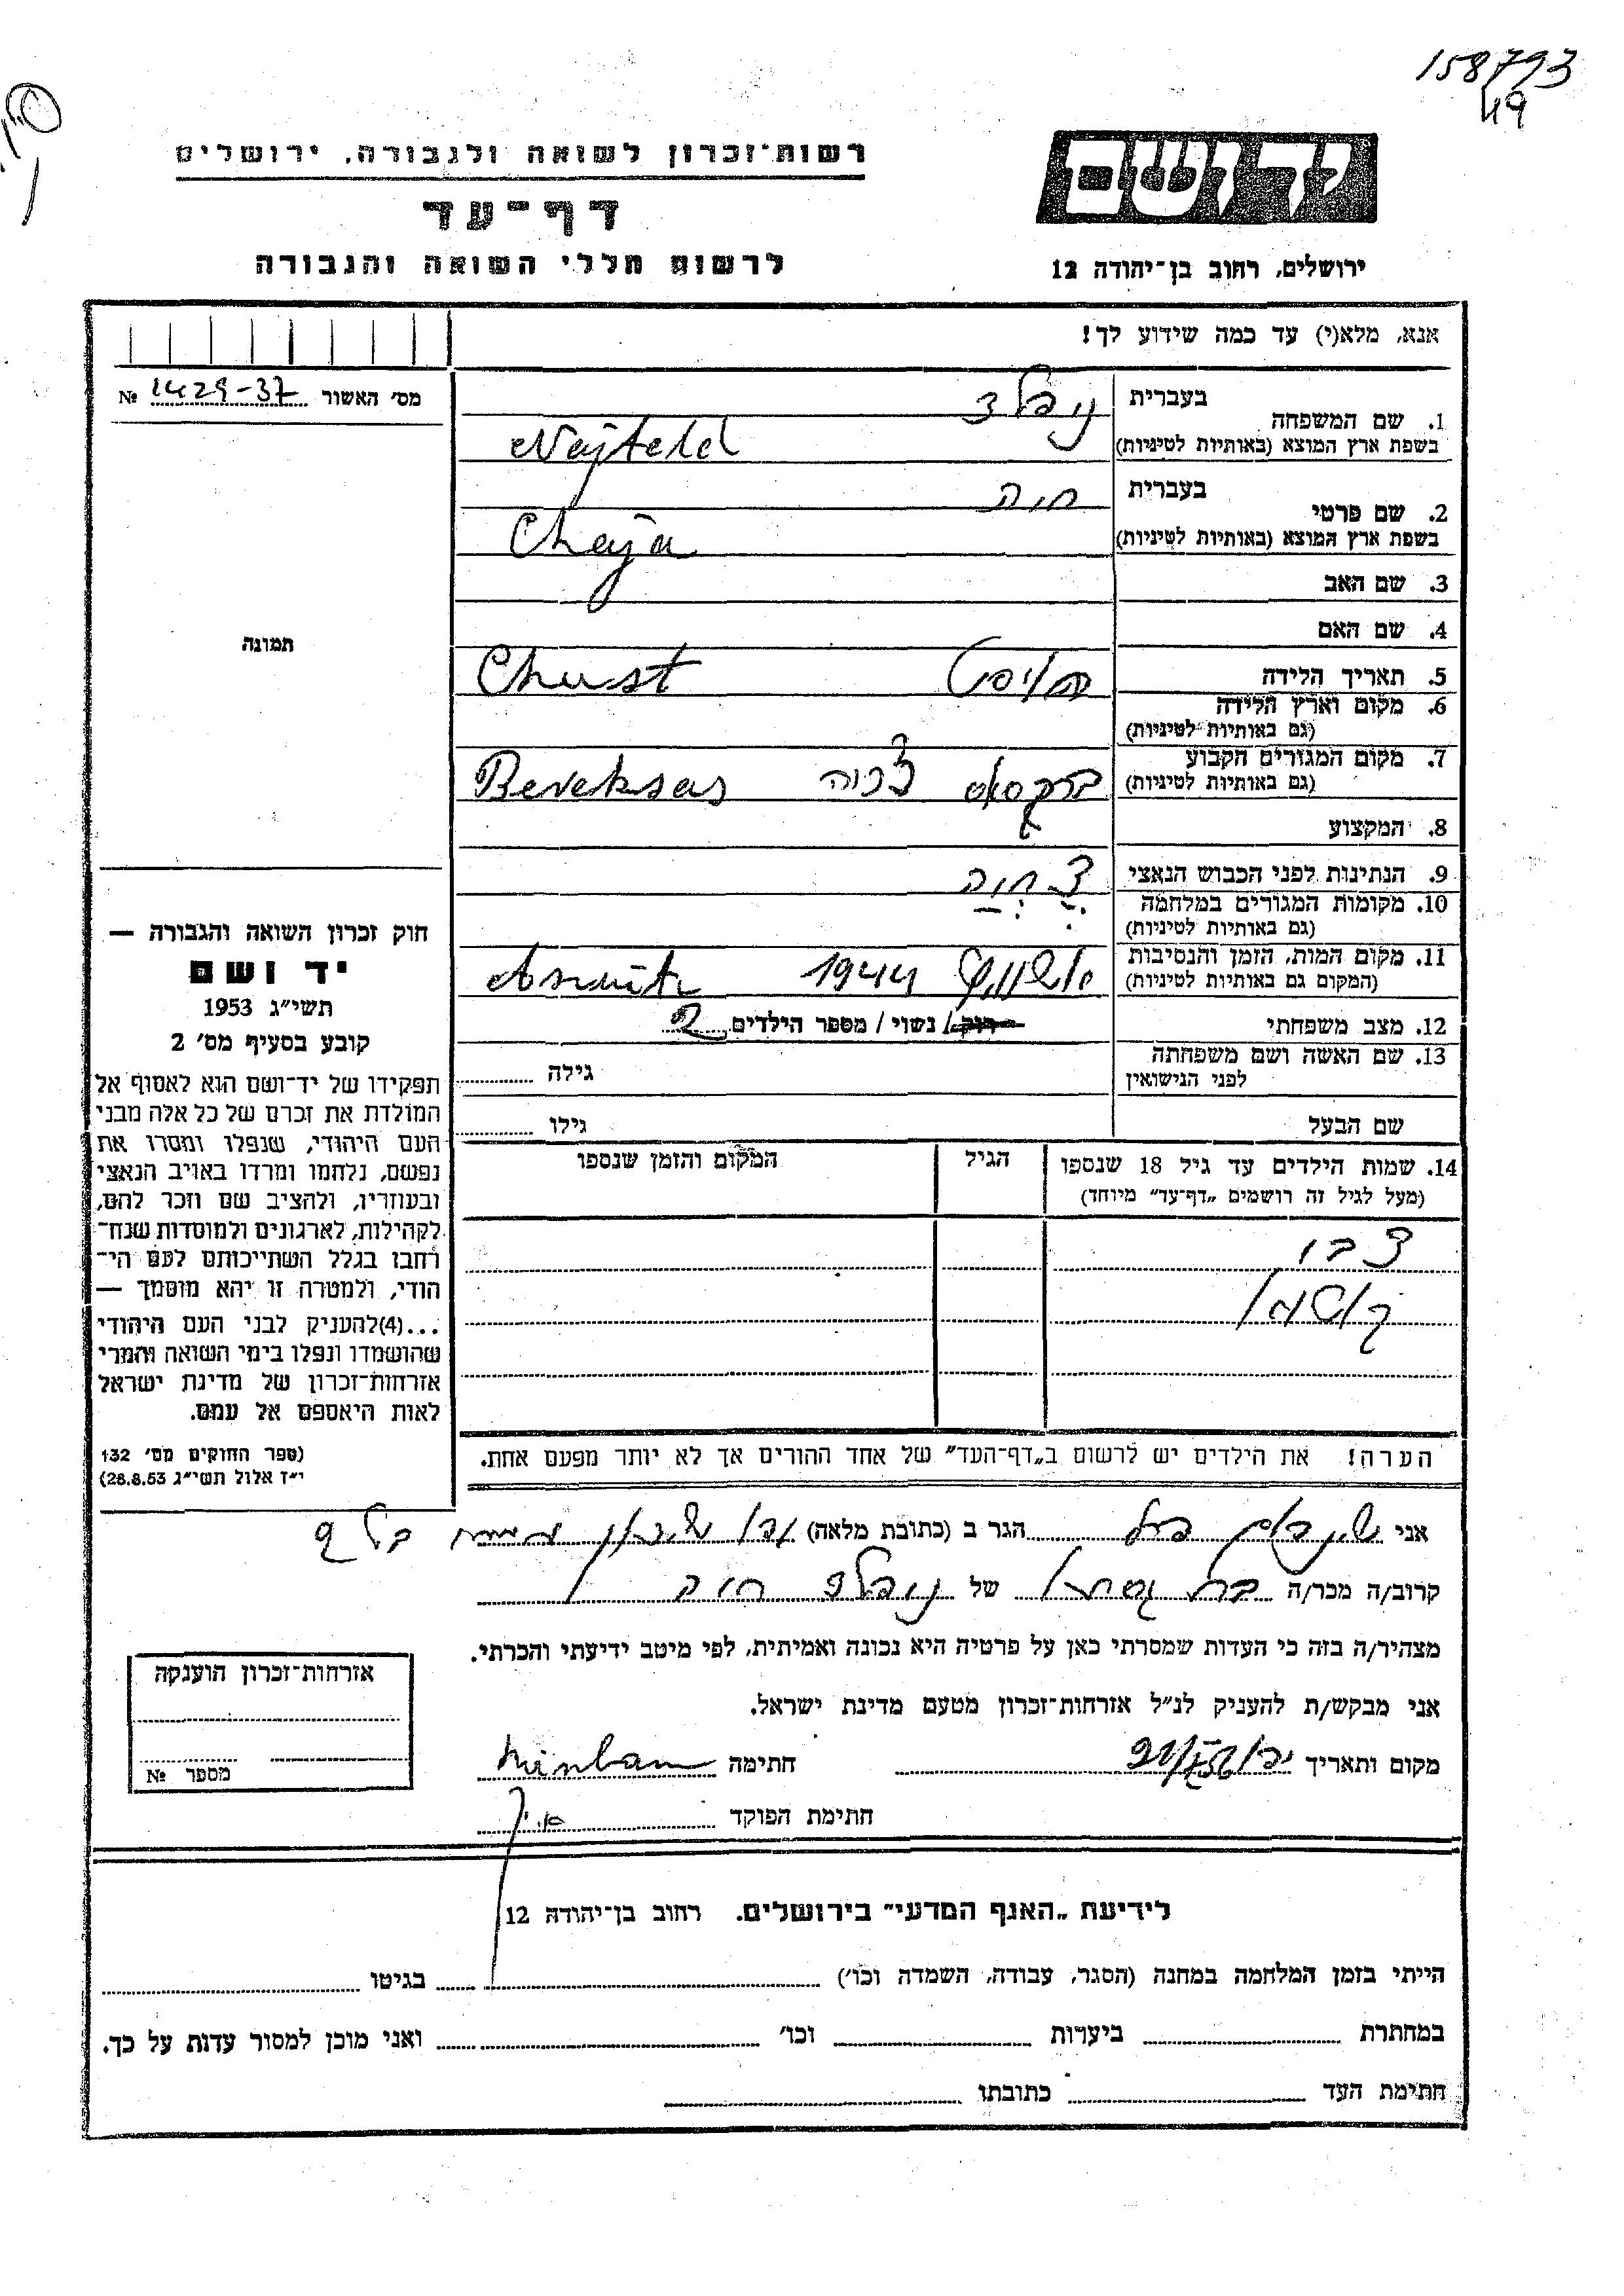 158793
49
רשות־זכרון לשואה ולגבורה, ירושלים
יד ושם
דף־עד
לרשום חללי השואה והגבורה
ירושלים, רחוב בן־יהודה 12
אנא, מלא(י) עד כמה שידוע לך!
מס׳ האשור 1429-37 №
בעברית
1. שם המשפחה
בשפת ארץ המוצא (באותיות לטיניות) Najfeld
בעברית חיה
2. שם פרטי
בשפת ארץ המוצא (באותיות לטיניות) Chaja
3. שם האב
4. שם האם
תמונה
5. תאריך הלידה Chust
6. מקום וארץ הלידה
(גם באותיות לטיניות)
7. מקום המגורים הקבוע
(גם באותיות לטיניות) Bereksas
8. המקצוע
9. הנתינות לפני הכבוש הנאצי
10. מקומות המגורים במלחמה
(גם באותיות לטיניות)
11. מקום המות, הזמן והנסיבות
(המקום גם באותיות לטיניות) אושוויץ 1944
12. מצב משפחתי רוק/ נשוי / מספר הילדים 2
13. שם האשה ושם משפחתה
לפני הנישואין
גילה
שם הבעל גילו
14. שמות הילדים עד גיל 18 שנספו
(מעל לגיל זה רושמים „דף־עד״ מיוחד)
הגיל
המקום והזמן שנספו
הערה! את הילדים יש לרשום ב„דף־העד״ של אחד ההורים אך לא יותר מפעם אחת.
חוק זכרון השואה והגבורה —
יד ושם
תשי״ג 1953
קובע בסעיף מס׳ 2
תפקידו של יד־ושם הוא לאסוף אל
המולדת את זכרם של כל אלה מבני
העם היהודי, שנפלו ומסרו את
נפשם, נלחמו ומרדו באויב הנאצי
ובעוזריו, ולהציב שם וזכר להם,
לקהילות, לארגונים ולמוסדות שנח־
רבו בגלל השתייכותם לעם הי־
הודי, ולמטרה זו יהא מוסמך —
...(4)להעניק לבני העם היהודי
שהושמדו ונפלו בימי השואה והמרי
אזרחות־זכרון של מדינת ישראל
לאות היאספם אל עמם.
(ספר החוקים מס׳ 132
י״ז אלול תשי״ג 28.8.53)
אני הגר ב (כתובת מלאה)
קרוב/ה מכר/ה של חיה
מצהיר/ה בזה כי העדות שמסרתי כאן על פרטיה היא נכונה ואמיתית, לפי מיטב ידיעתי והכרתי.
אני מבקש/ת להעניק לנ״ל אזרחות־זכרון מטעם מדינת ישראל.
מקום ותאריך חתימה
חתימת הפוקד
אזרחות־זכרון הוענקה
מספר №
לידיעת „האגף המדעי״ בירושלים. רחוב בן־יהודה 12
הייתי בזמן המלחמה במחנה (הסגר, עבודה, השמדה וכו׳) בגיטו
במחתרת ביערות וכו׳ ואני מוכן למסור עדות על כך.
חתימת העד כתובתו